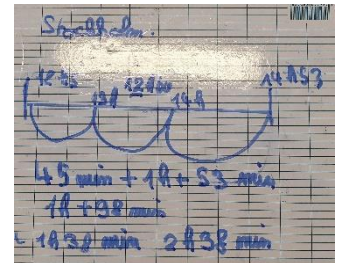 Stockholm.
12h15 13h 14h 14h53
45 min + 1h + 53 min
1h + 98 min
1h38 min 2h38 min